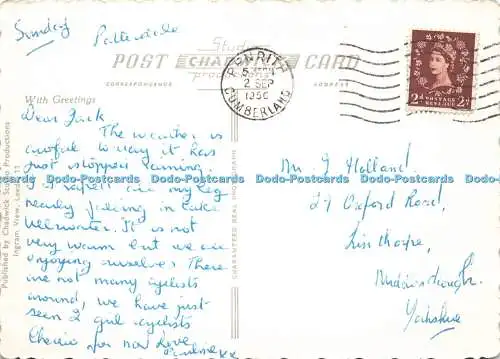 Sunday
Patterdale
Studio
POST CHADWICK CARD
CORRESPONDENCE
ADDRESS
PENRITH
2 SEP
1956
CUMBERLAND
2d POSTAGE REVENUE 2d
With Greetings
Dear Jack
The weather is
awful to day it has
just stopped raining.
I slipped one my leg
nearly falling in Lake
Ullswater. It is not
very warm but we are
enjoying ourselves There
are not many cyclists
around, we have just
seen 2 girl cyclists
Cheerio for now Love
Pauline xx
Mr J Holland
29 Oxford Road,
Linthorpe,
Middlesbrough.
Yorkshire
Published by Chadwick Studio Productions
Ingram View, Leeds 11
GUARANTEED REAL PHOTOGRAPH
Dodo-Postcards Dodo-Postcards Dodo-Postcards Dodo-Postcards Dodo-Postcards